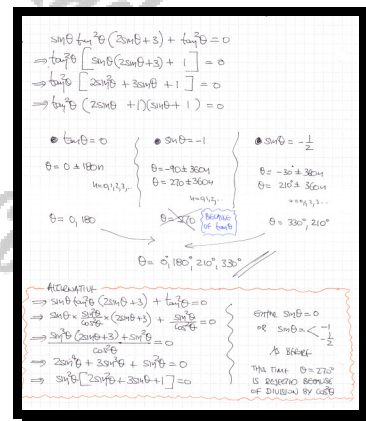 sinθ tan²θ (2sinθ+3) + tan²θ = 0
⇒ tan²θ [ sinθ(2sinθ+3) + 1 ] = 0
⇒ tan²θ [ 2sin²θ + 3sinθ + 1 ] = 0
⇒ tan²θ (2sinθ + 1)(sinθ + 1) = 0
• tanθ = 0
θ = 0 ± 180n
n=0,1,2,3,...
θ = 0, 180
• sinθ = -1
θ = -90 ± 360n
θ = 270 ± 360n
n=0,1,2,...
θ = 270
BECAUSE
OF tanθ
• sinθ = -1/2
θ = -30° ± 360n
θ = 210° ± 360n
n=0,1,2,3,...
θ = 330°, 210°
θ = 0°, 180°, 210°, 330°
ALTERNATIVE
⇒ sinθ tan²θ (2sinθ+3) + tan²θ = 0
⇒ sinθ × sin²θ/cos²θ × (2sinθ+3) + sin²θ/cos²θ = 0
⇒ sin³θ (2sinθ+3) + sin²θ / cos²θ = 0
⇒ 2sin⁴θ + 3sin³θ + sin²θ = 0
⇒ sin²θ [2sin²θ + 3sinθ + 1] = 0
EITHER sinθ = 0
OR sinθ = < -1 -1/2
AS BEFORE
THIS TIME θ = 270°
IS REJECTED BECAUSE
OF DIVISION BY cos²θ